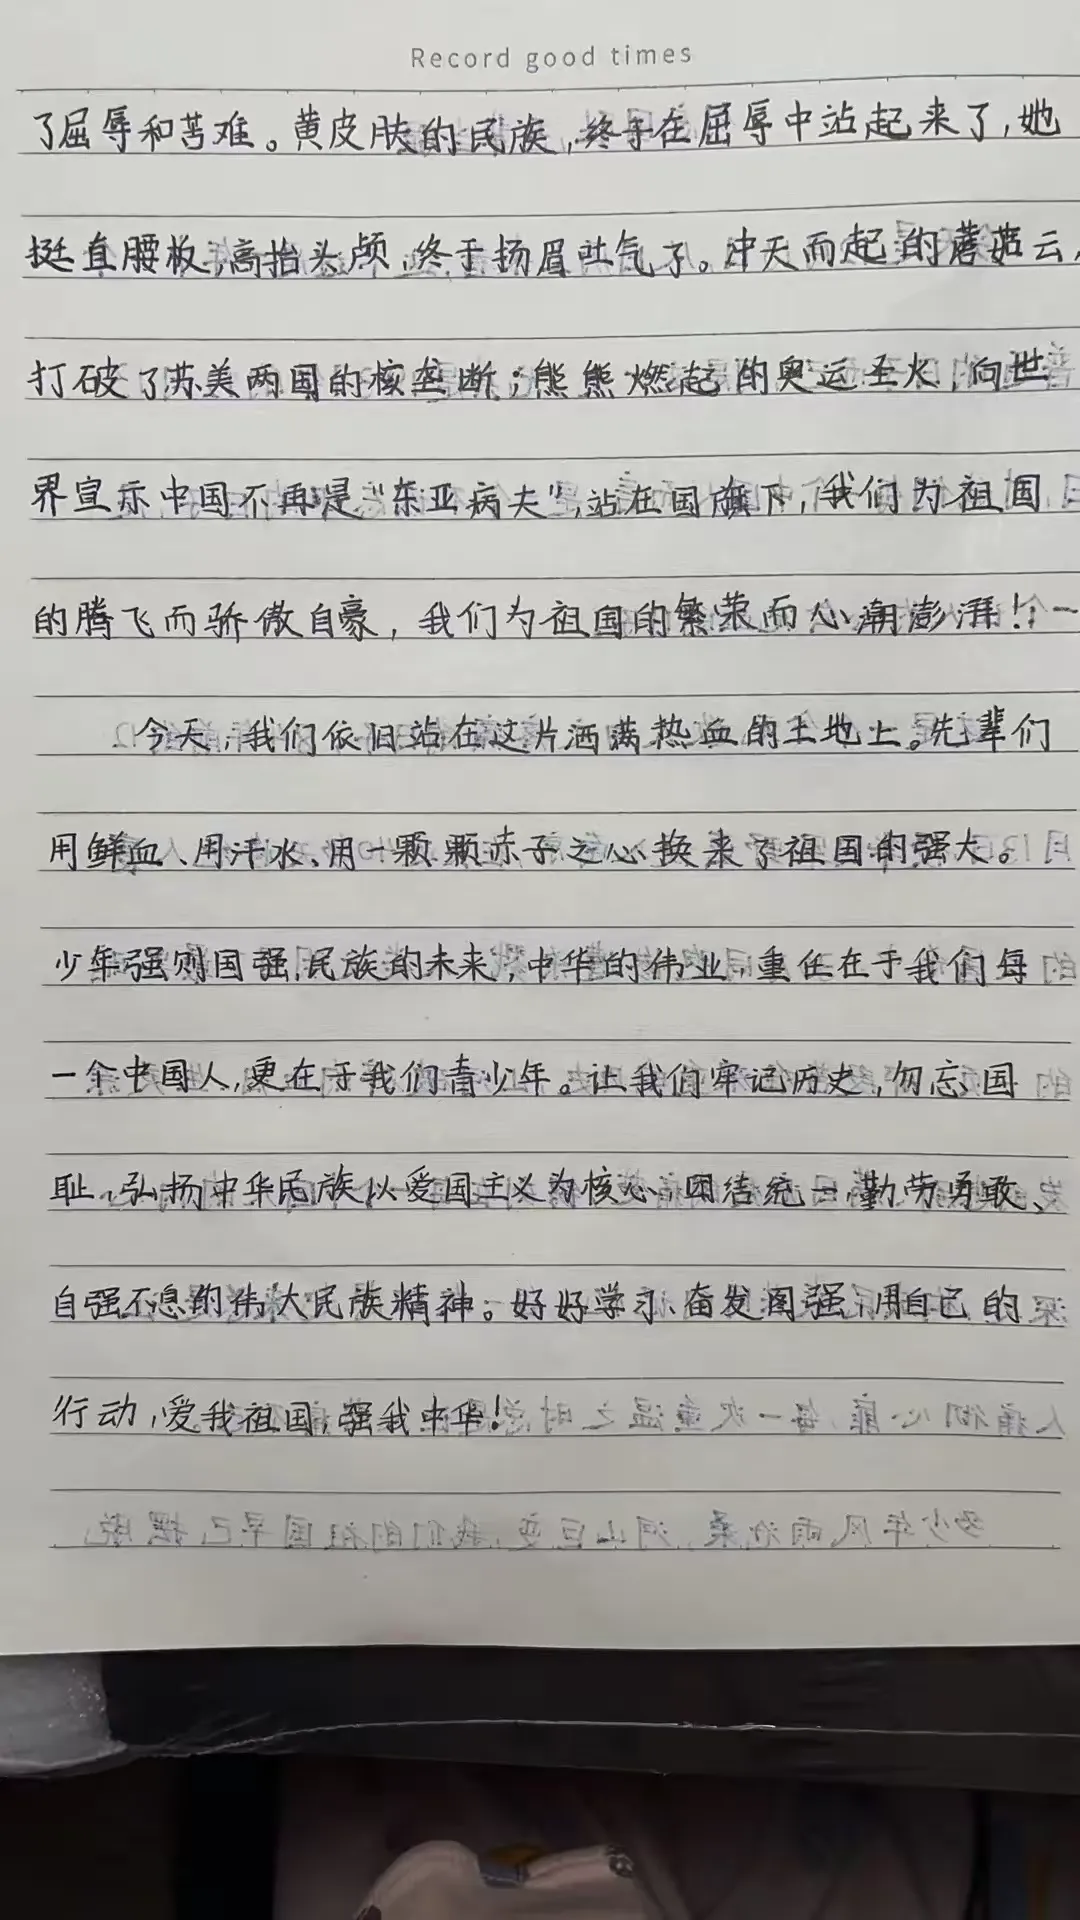 Record good times
了屈辱和苦难。黄皮肤的民族,终于在屈辱中站起来了,她
挺直腰板,高抬头颅,终于扬眉吐气了。冲天而起的蘑菇云,
打破了苏美两国的核垄断;熊熊燃起的奥运圣火,向世
界宣示中国不再是"东亚病夫",站在国旗下,我们为祖国
的腾飞而骄傲自豪,我们为祖国的繁荣而心潮澎湃!
今天,我们依旧站在这片洒满热血的土地上。先辈们
用鲜血、用汗水、用一颗颗赤子之心换来了祖国的强大。
少年强则国强,民族的未来,中华的伟业,重任在于我们每
一个中国人,更在于我们青少年。让我们牢记历史,勿忘国
耻,弘扬中华民族以爱国主义为核心,团结统一,勤劳勇敢、
自强不息的伟大民族精神。好好学习、奋发图强,用自己的
行动,爱我祖国,强我中华!
多少年风雨沧桑,河山巨变,我们的祖国早已摆脱